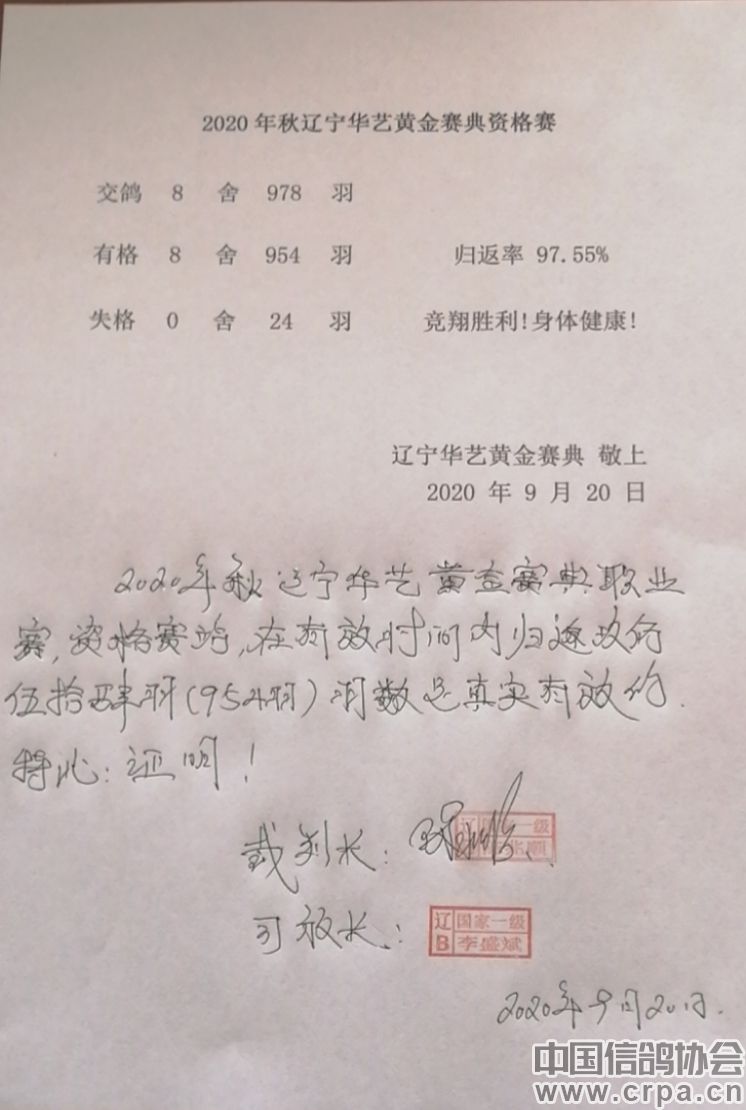 2020年秋辽宁华艺黄金赛典资格赛
交鸽 8 舍 978 羽
有格 8 舍 954 羽 归返率 97.55%
失格 0 舍 24 羽 竞翔胜利!身体健康!
辽宁华艺黄金赛典 敬上
2020 年 9 月 20 日
2020年秋辽宁华艺黄金赛典职业
赛,资格赛站,在有效时间内归返玖佰
伍拾肆羽(954羽)羽数是真实有效的.
特此:证明!
裁判长:
辽 国家一级
司放长:
辽 国家一级
B 李盛斌
2020年9月20日.
中国信鸽协会
www.crpa.cn